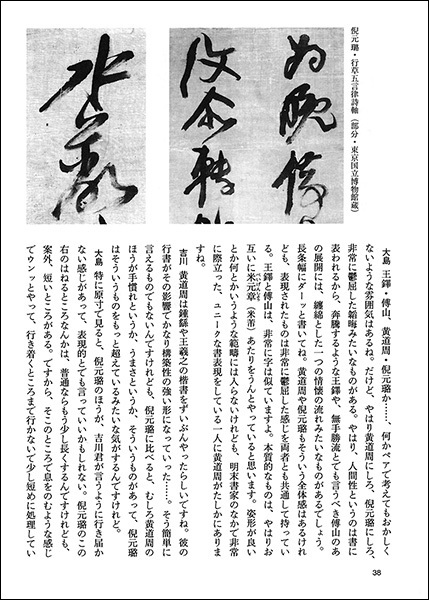 倪元璐・行草五言律詩軸(部分・東京国立博物館蔵)
大島 王鐸・傅山、黄道周・倪元璐か……、何かペアで考えてもおかしく
ないような雰囲気はあるね。だけど、やはり黄道周にしろ、倪元璐にしろ、
非常に鬱屈した韜晦みたいなものがある。やはり、人間性というのは書に
表われるから、奔騰するような王鐸や、無手勝流とでも言うべき傅山のあ
の展開には、纏綿とした一つの情懐の流れみたいなものがあるでしょう。
長条幅にダーッと書いてね。黄道周や倪元璐もそういう全体感はあるけれ
ども、表現されたものは非常に鬱屈した感じを両者とも共通して持ってい
る。王鐸と傅山は、非常に字は似ていますよ。本質的なものは、やはりお
互いに米元章(米芾)あたりをうんとやっていると思います。姿形が良い
とか何とかいうような範疇には入らないけれども、明末書家のなかで非常
に際立った、ユニークな書表現をしている一人に黄道周がたしかにありま
すね。
吉川 黄道周は鍾繇や王羲之の楷書をずいぶんやったらしいですね。彼の
行書がその影響でかなり構築性の強い形になっていった……。そう簡単に
言えるものでもないんですけれども、倪元璐に比べると、むしろ黄道周の
ほうが手慣れというか、うまさというか、そういうものがあって、倪元璐
はそういうものをもっと超えているみたいな気がするんですけれど。
大島 特に原寸で見ると、倪元璐のほうが、吉川君が言うように行き届か
ない感じがあって、表現的とても言っていいかもしれない。倪元璐のこの
右のはねるところなんかは、普通ならもう少し長くするんですけれども、
案外、短いところがある。ですから、そこのところで息をのむような感じ
でゥンッとやって、行き着くところまで行かないで少し短めに処理してい
38